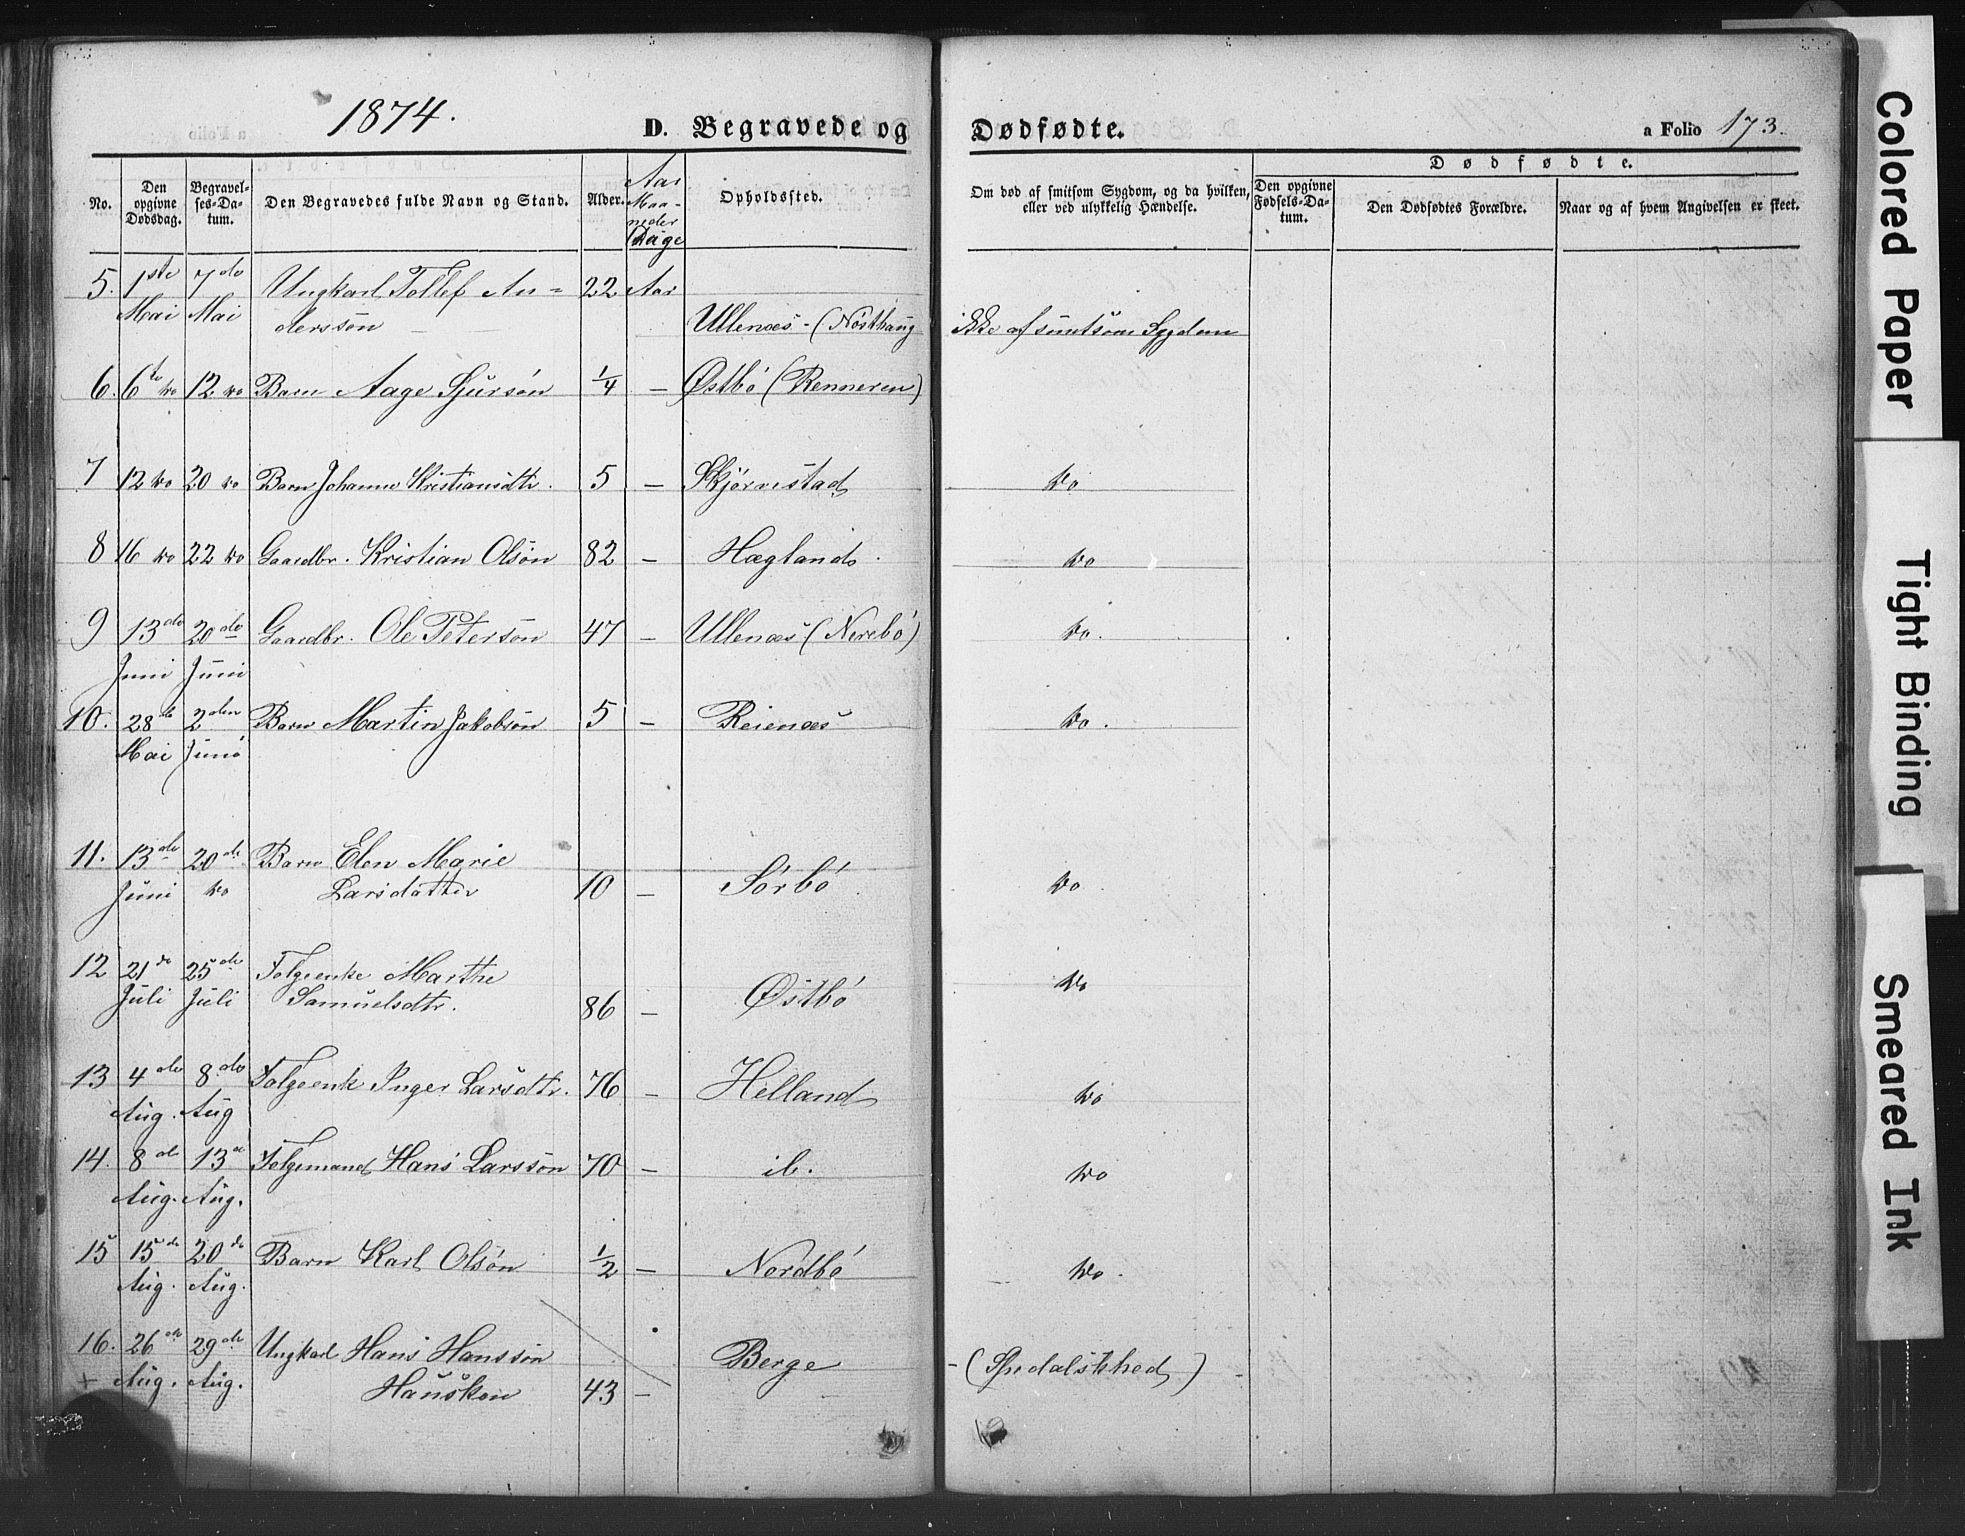 1874.
D. Begravede og
Dødfødte.
a Folio 173.
No.
Den opgivne Dødsdag.
Begravelses-Datum.
Den Begravedes fulde Navn og Stand.
Alder.
Aar Maaneder Dage
Opholdssted.
Om død af smitsom Sygdom, og da hvilken, eller ved ulykkelig Hændelse.
Dødfødte.
Den opgivne Fødsels-Datum.
Den Dødfødtes Forældre.
Naar og af hvem Angivelsen er skeet.
5. 1ste 7de Ungkarl Tollef An= 22 Aar
Mai Mai dersson Ullenæs - (Nösthaug ikke af smitsom Sygdom
6. 6te do 12 do Barn Aage Sjursön 1/4 — Østbö (Renneren)
7 12 do 20 do Barn Johanne Kristiansdtr. 5 — Skjörvestad do
8 16 do 22 do Gaardbr. Kristian Olsön 82 — Hægland. do
9 13de 20de Gaardbr. Ole Petersön 47 — Ullenæs (Nerebö) do.
Juni Juni
10. 28de 2den Barn Martin Jakobsön 5 — Reienæs do.
Mai Juni
11. 13de 20de Barn Elen Marie
Juni do Larsdatter 10 — Sörbö do
12 21de 25de Folgeenke Marthe
Juli Juli Samuelsdtr. 86 — Østbö do
13 4de 8de Folgeenk Inger Larsdtr. 76 — Helland do
Aug. Aug
14. 8de 13de Folgemand Hans Larssön 70 — ib. do
Aug. Aug.
15 15de 20de Barn Karl Olsön 1/2 — Nordbö do.
Aug. Aug.
16. 26de 29de Ungkarl Hans Hanssön Berge - (Spedalskhed)
+ Aug. Aug. Hausken 43 —
Colored Paper
Tight Binding
Smeared Ink